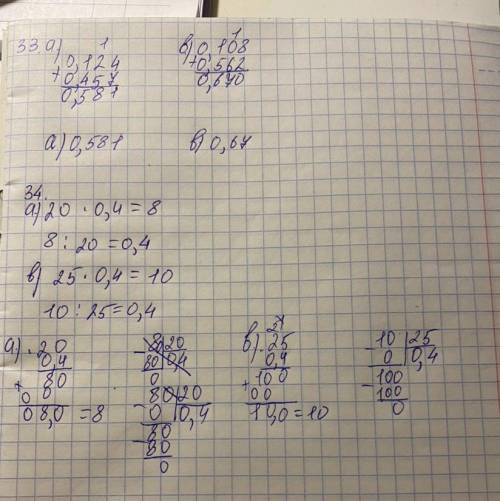 33. а) 1
0,124
+ 0,457
0,581
в) 1
0,108
+ 0,562
0,670
а) 0,581 в) 0,67
34.
а) 20 · 0,4 = 8
8 : 20 = 0,4
в) 25 · 0,4 = 10
10 : 25 = 0,4
а) · 20
0,4
+ 80
0 0
0 8,0 = 8
80 20
0 0,4
80
80
0
в) 2
· 25
0,4
+ 100
00
10,0 = 10
- 10 25
0 0,4
- 100
100
0